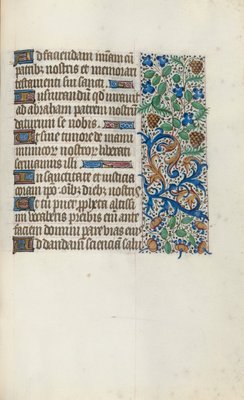 Ad faciendam miam cū
patribꝰ nostris et memorari
testamenti sui sancti
Jusiurandū qd iurauit
ad abraham patrem nostrū
daturum se nobis
Ut sine timore de manu
inimicorꝝ nostrorꝝ liberati
seruiamus illi
In sanctitate et iusticia
coram ipo oībꝫ diebꝫ nostris
Et tu puer ꝓpheta altissi
mi vocaberis preibis em̄ ante
faciem domini parare vias eius
Ad dandam scienciam salu